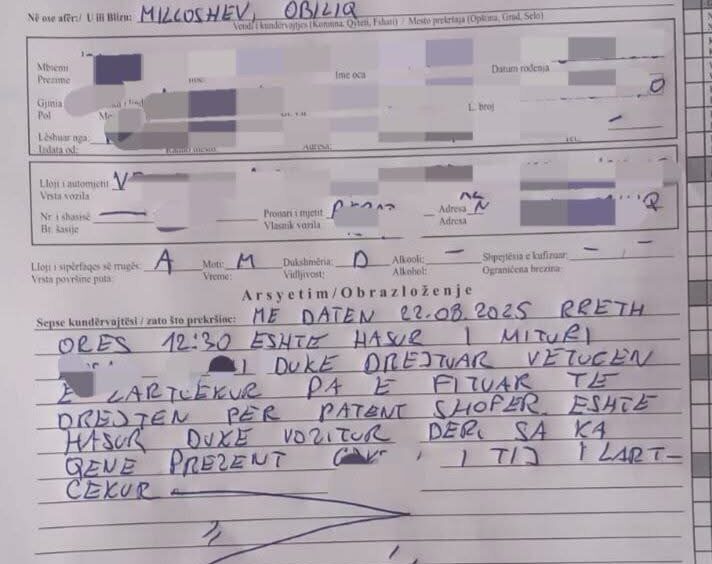 Në ose afër:/ U ili Blizu: MILLOSHEV, OBILIQ
Vendi i kundërvajtjes (Komuna, Qyteti, Fshati) / Mesto prekršaja (Opština, Grad, Selo)
Mbiemri
Prezime Ime oca Datum rođenja
Gjinia
Pol L. broj
Lëshuar nga:
Izdata od: Adresa:
Lloji i automjetit V
Vrsta vozila
Nr. i shasisë Pronari i mjetit Adresa
Br. šasije Vlasnik vozila Adresa
Lloji i sipërfaqes së rrugës: A Moti: M Dukshmëria: D Alkooli: - Shpejtësia e kufizuar: -
Vrsta površine puta: Vreme: Vidljivost: Alkohol: Ograničena brzina:
Arsyetim/Obrazloženje
Sepse kundërvajtësi / zato što prekršioc: ME DATEN 22.08.2025 RRETH
ORES 12:30 ESHTE HASUR I MITURI
DUKE DREJTUAR VETUREN
E LARTCEKUR PA E FITUAR TE
DREJTEN PER PATENT SHOFER. ESHTE
HASUR DUKE VOZITUR DERI SA KA
QENE PREZENT I TIJ I LART-
CEKUR